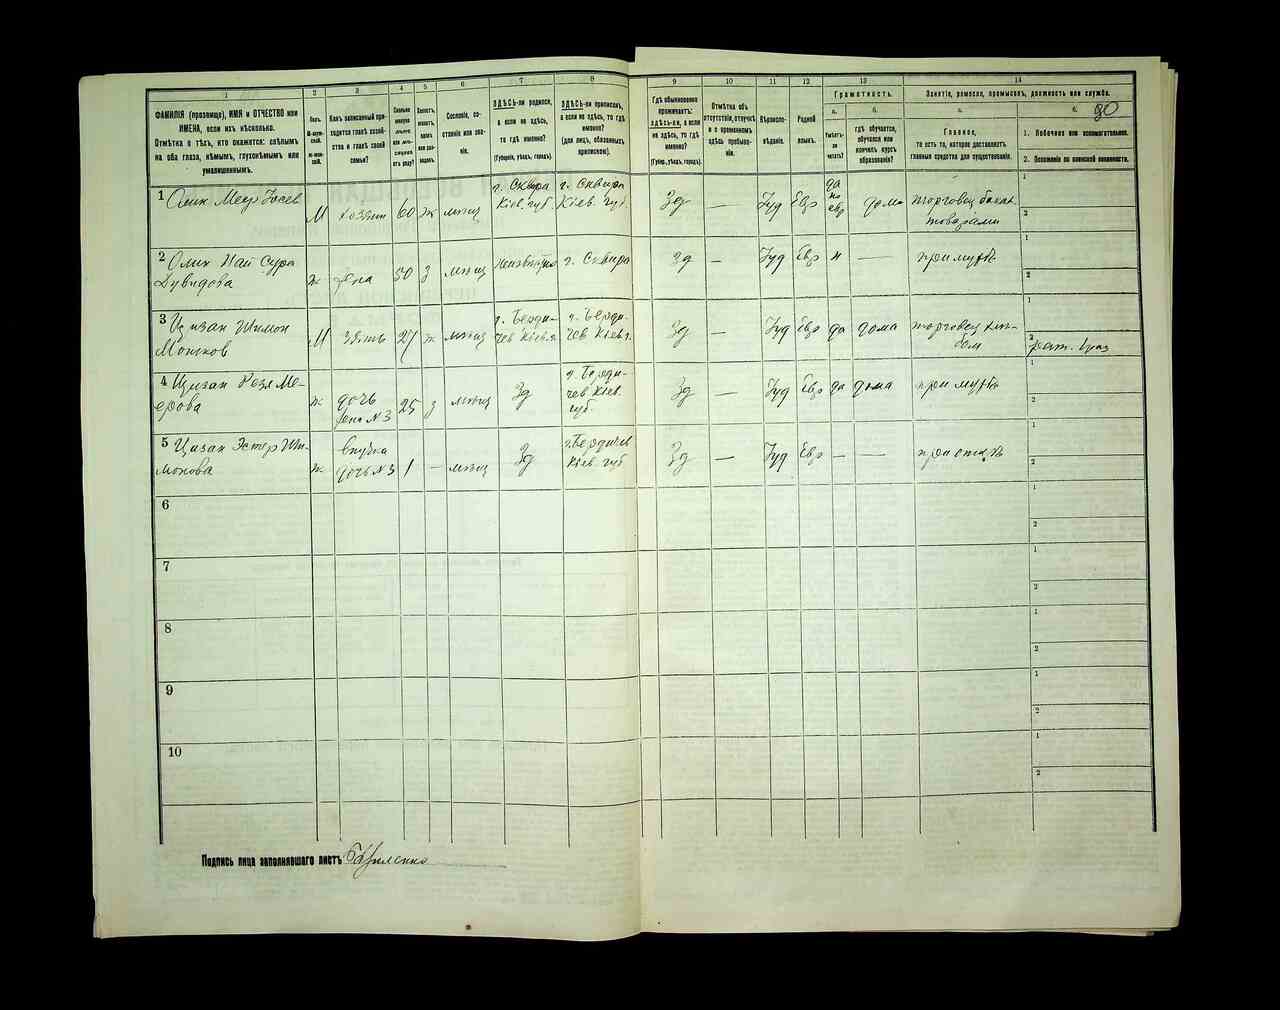 1 2 3 4 5 6 7 8 9 10 11 12 13 14
ФАМИЛІЯ (прозвище), ИМЯ и ОТЧЕСТВО или
ИМЕНА, если ихъ нѣсколько.
Отмѣтка о тѣхъ, кто окажется: слѣпымъ
на оба глаза, нѣмымъ, глухонѣмымъ или
умалишеннымъ.
Полъ.
М-мужской.
Ж-женскій.
Какъ записанный приходится
главѣ хозяйства
и главѣ своей
семьи?
Сколько
минуло
лѣтъ
или мѣсяцевъ
отъ роду?
Холостъ,
женатъ,
вдовъ
или разведенъ.
Сословіе, состояніе
или званіе.
ЗДѢСЬ-ли родился,
а если не здѣсь,
то гдѣ именно?
(Губернія, уѣздъ, городъ).
ЗДѢСЬ-ли приписанъ,
а если не здѣсь, то гдѣ
именно?
(для лицъ, обязанныхъ
припискою).
Гдѣ обыкновенно
проживаетъ:
здѣсь-ли, а если
не здѣсь, то гдѣ
именно?
(Губер., уѣздъ, городъ).
Отмѣтка объ
отсутствіи, отлучкѣ
и о временномъ
здѣсь пребываніи.
Вѣроисповѣданіе.
Родной
языкъ.
Грамотность.
а.
Умѣетъ-ли
читать?
б.
гдѣ обучается,
обучался или
кончилъ курсъ
образованія?
Занятіе, ремесло, промыселъ, должность или служба.
а.
Главное,
то есть то, которое доставляетъ
главныя средства для существованія.
б.
90
1. Побочное или вспомогательное.
2. Положеніе по воинской повинности.
1 Олик Меер Іосев М хозяин 60 ж мѣщ г. Сквира Кіев. губ. г. Сквира Кіев. губ. Зд — Іуд Евр да по евр дома торговец бакал. товарами 1 2
2 Олик Хай Сура Дувидова ж жена 50 з мѣщ Неизвѣстно г. Сквира Зд — Іуд Евр н — при мужѣ 1 2
3 Цизан Шимон М зять 27 ж мѣщ г. Бердичев Кіев. г. г. Бердичев Кіев. г. Зд — Іуд Евр да дома торговец хлѣбом 1 2 рат. 1 раз
4 Цизан Рейзя Меерова ж дочь жена №3 25 з мѣщ Зд г. Бердичев Кіев. губ. Зд — Іуд Евр да дома при мужѣ 1 2
5 Цизан Эстер Шимонова ж внучка дочь №3 1 — мѣщ Зд г. Бердичев Кіев. губ Зд — Іуд Евр — — при отцѣ 1 2
6 1 2
7 1 2
8 1 2
9 1 2
10 1 2
Подпись лица заполнявшаго листъ